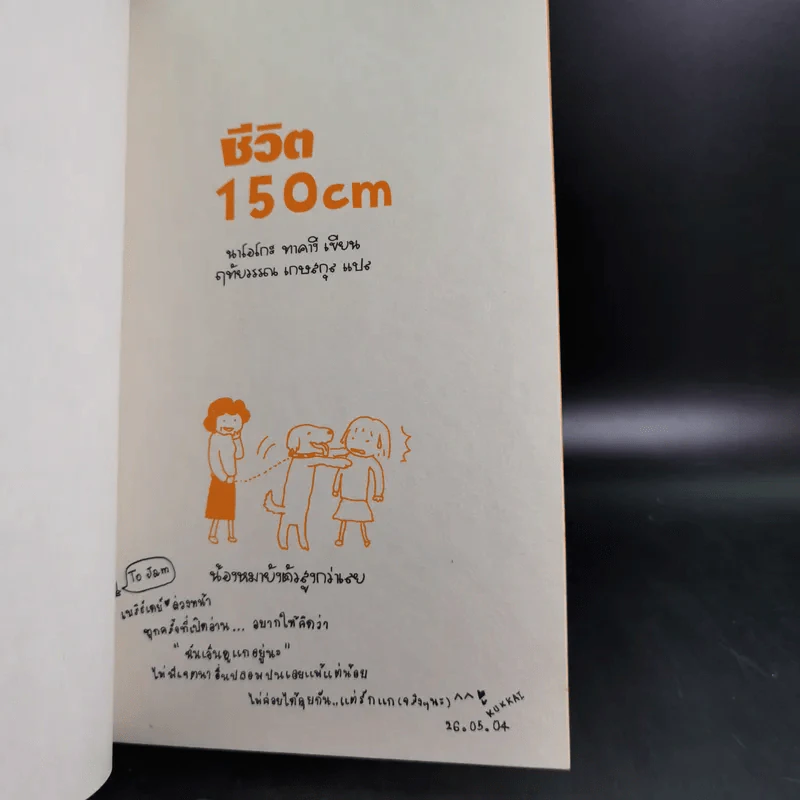 ชีวิต
150cm
นาโอโกะ ทาคางิ เขียน
ฤทัยวรรณ เกษสกุล แปล
น้องหมายังตัวสูงกว่าเลย
To Jam
เบิร์ธเดย์ ♥ ล่วงหน้า
ทุกครั้งที่เปิดอ่าน... อยากให้คิดว่า
"ฉันเอ็นดูแกอยู่นะ"
ไม่มีเจตนาอื่นปลอมปนเลยแม้แต่น้อย
ไม่ค่อยได้คุยกัน.. แต่รักแก (จริงๆนะ) ^^
KOKKAI
26.05.04